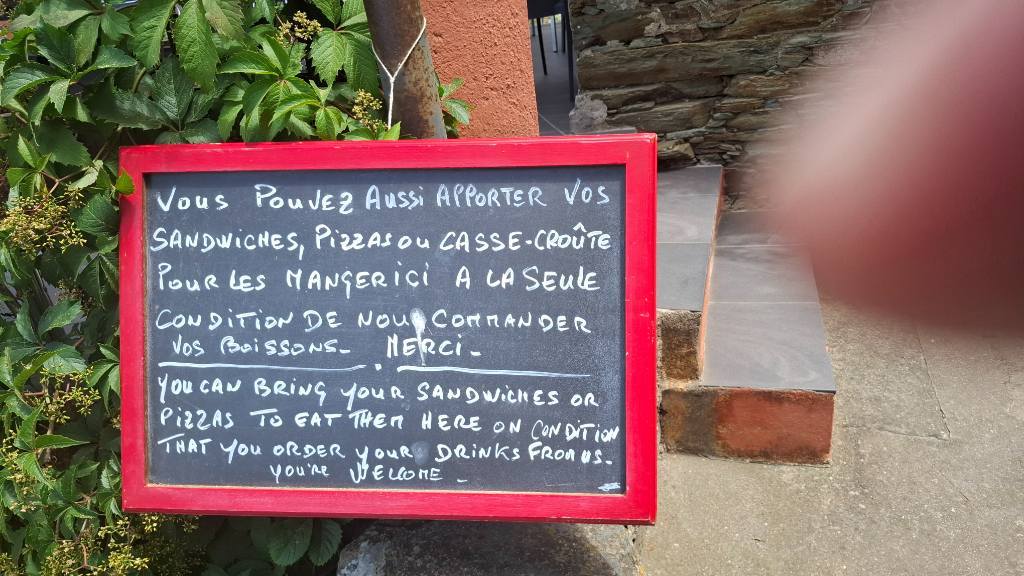 VOUS POUVEZ AUSSI APPORTER VOS
SANDWICHES, PIZZAS OU CASSE-CROÛTE
POUR LES MANGER ICI A LA SEULE
CONDITION DE NOUS COMMANDER
VOS BOISSONS_ . MERCI_
YOU CAN BRING YOUR SANDWICHES OR
PIZZAS TO EAT THEM HERE ON CONDITION
THAT YOU ORDER YOUR DRINKS FROM US.
YOU'RE WELCOME_